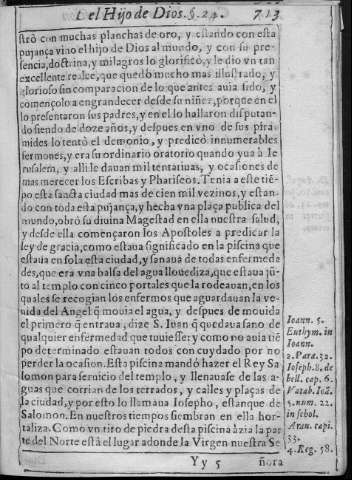 Del Hijo de Dios. §. 24. 713
strò con muchas planchas de oro, y estando con esta
pujança vino el hijo de Dios al mundo, y con su pre-
sencia, doctrina, y milagros lo glorificó, y le dio vn tan
excellente realce, que quedó mucho mas illustrado, y
glorioso sin comparacion de lo que antes auia sido, y
començolo a engrandecer desde su niñez, porque en el
lo presentaron sus padres, y en el lo hallaron disputan-
do siendo de doze años, y despues en vno de sus pira-
mides lo tentò el demonio, y predicó innumerables
sermones, y era su ordinario oratorio quando yua à Ie
rusalem, y alli le dauan mil tentatiuas, y ocasiones de
mas merecer los Escribas y Phariseos. Tenia a este tiẽ-
po esta sancta ciudad mas de cien mil vezinos, y estan-
do con toda esta pujança, y hecha vna plaça publica del
mundo, obrò su diuina Magestad en ella nuestra salud,
y desde ella començaron los Apostoles a predicar la
ley de gracia, como estaua significado en la piscina que
estaua en sola esta ciudad, y sanaua de todas enfermeda
des, que era vna balsa del agua llouediza, que estaua jũ-
to al templo con cinco portales que la rodeauan, en los
quales se recogian los enfermos que aguardauan la ve-
nida del Angel q̃ mouia el agua, y despues de mouida
el primero q̃ entraua, dize S. Iuan q̃ quedaua sano de
qualquier enfermedad que tuuiesse: y como no auia tiẽ
po determinado estauan todos con cuydado por no
perder la ocasion. Esta piscina mandó hazer el Rey Sa
lomon para seruicio del templo, y llenauase de las a-
guas que corrian de los terrados, y calles y plaças de
la ciudad, y por esto lo llamaua Iosepho, estanque de
Salomon. En nuestros tiempos siembran en ella hor-
taliza. Como vn tiro de piedra desta piscina àzia la par
te del Norte està el lugar adonde la Virgen nuestra Se
Yy 5 ñora
Ioann. 5.
Euthym. in
Ioann.
2. Para. 32.
Ioseph. 8. de
bell. cap. 6.
Vatab. Ioã.
5. num. 22.
in schol.
Aran. capi.
33.
4. Reg. 58.